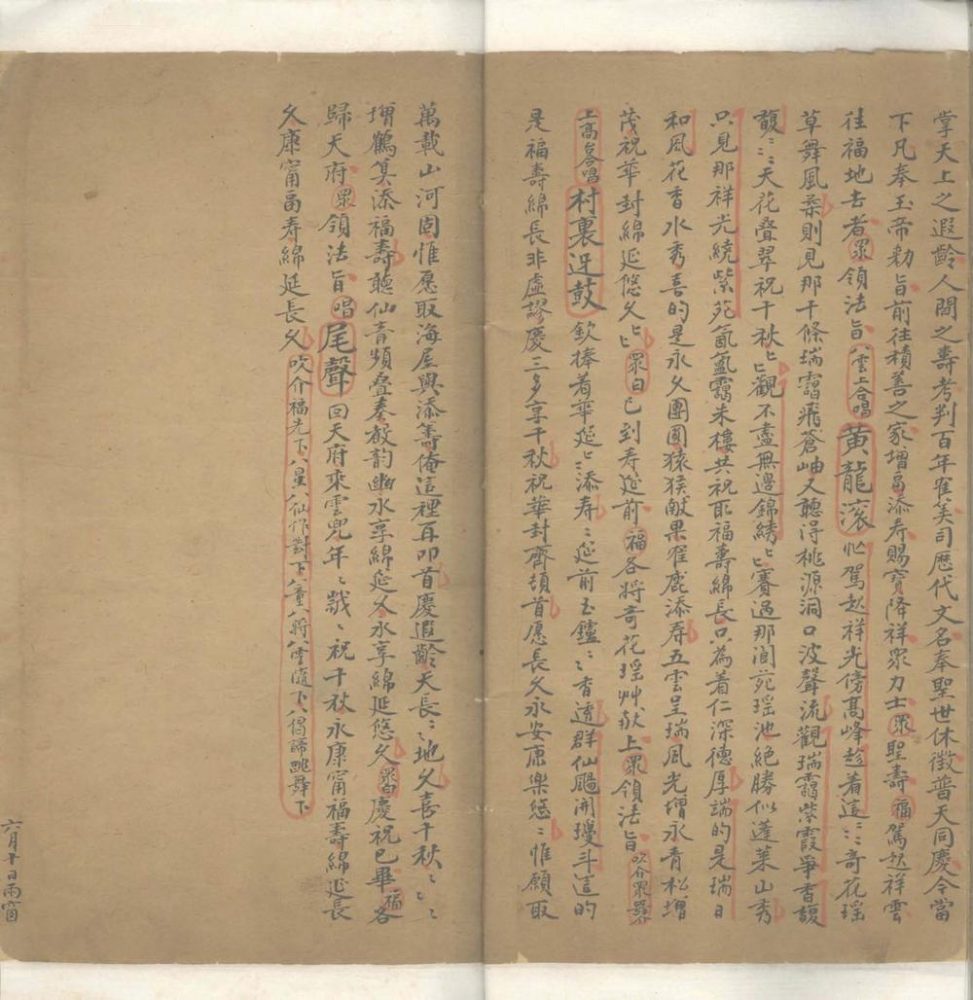 掌天上之遐齡人間之壽考判百年寉筭司歷代文名奉聖世休徵普天同慶今當
下凡奉玉帝勅旨前往積善之家增畐添寿賜寶降祥眾力士眾聖壽福駕起祥雲
往福地去者眾領法旨八雲上合唱黃龍滚忙駕起祥光傍髙峰趁着這〻奇花瑶
草舞風柔則見那千條瑞靄飛蒼岫又聽得桃源洞口波聲流觀瑞靄紫霞爭香馥
馥〻天花叠翠祝千秋〻觀不盡無邊錦綉〻賽過那阆苑瑶池絶勝似蓬莱山秀
只見那祥光繞紫苑氤氲靄朱樓共祝取福壽綿長只為着仁深德厚端的是瑞日
和風花香水秀喜的是永久團圓猿猴献果寉鹿添寿五雲呈瑞風光增永青松增
茂祝華封綿延悠久〻眾白已到寿筵前福各将奇花瑶艸献上眾領法旨吹合眾
上髙台唱村裏迓鼓欽捧着華筵〻添寿〻筵前玉鑪〻香透群仙飏開瓊斗這的
是福壽綿長非虚謬慶三多享千秋祝華封齊頡首愿長久永安康樂悠〻惟願取
萬載山河固惟愿取海屋與添筹俺這裡耳叩首慶遐齡天長〻地久喜千秋〻〻
增鶴筭添福壽聽仙音頻叠奏教韵幽永享綿延久永享綿延悠久眾白慶祝已畢福各
歸天府眾領法旨唱尾聲回天府乘雲兜年〻戠〻祝千秋永康甯福壽綿延長
久康甯畐寿綿延長久吹介福先下八星八仙作對下八童八将八雲隨下八偈諦跳舞下
六月十日雨窗